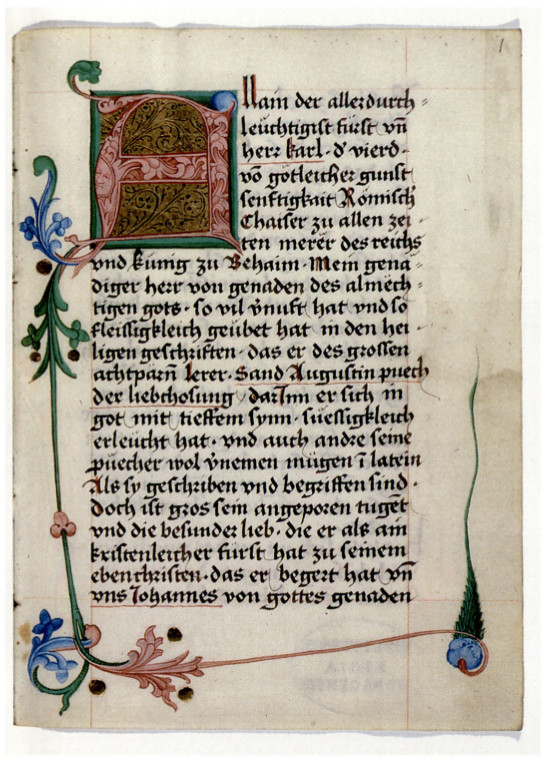 1
Allain der allerdurch⸗
leuchtigist fürst vn̄
herr karl · d' vierd ·
vō götleicher gunst
senftigkait Römisch
Chaiser zu allen zei ·
ten merer des reichs
vnd künig zu Behaim · Mein gena⸗
diger herr von genaden des almech⸗
tigen gots · so vil v̓nuft hat vnd so
fleissigkleich geübet hat in den hei⸗
ligen geschriften · das er des grossen
achtparn̄ lerer · Sand Augustin puech
der liebchosung darInn er sich in
got mit tieffem synn · süessigkleich
erleücht hat · vnd auch andre seine
püecher wol v̓nemen mügen ī latein
Als sy geschriben vnd begriffen sind ·
Doch ist gros sein angeporen tugēt
vnd die besunder lieb · die er als ain
kristenleicher fürst hat zu seinem
ebenchristen · das er begert hat vn̄
vns Johannes von gottes genaden